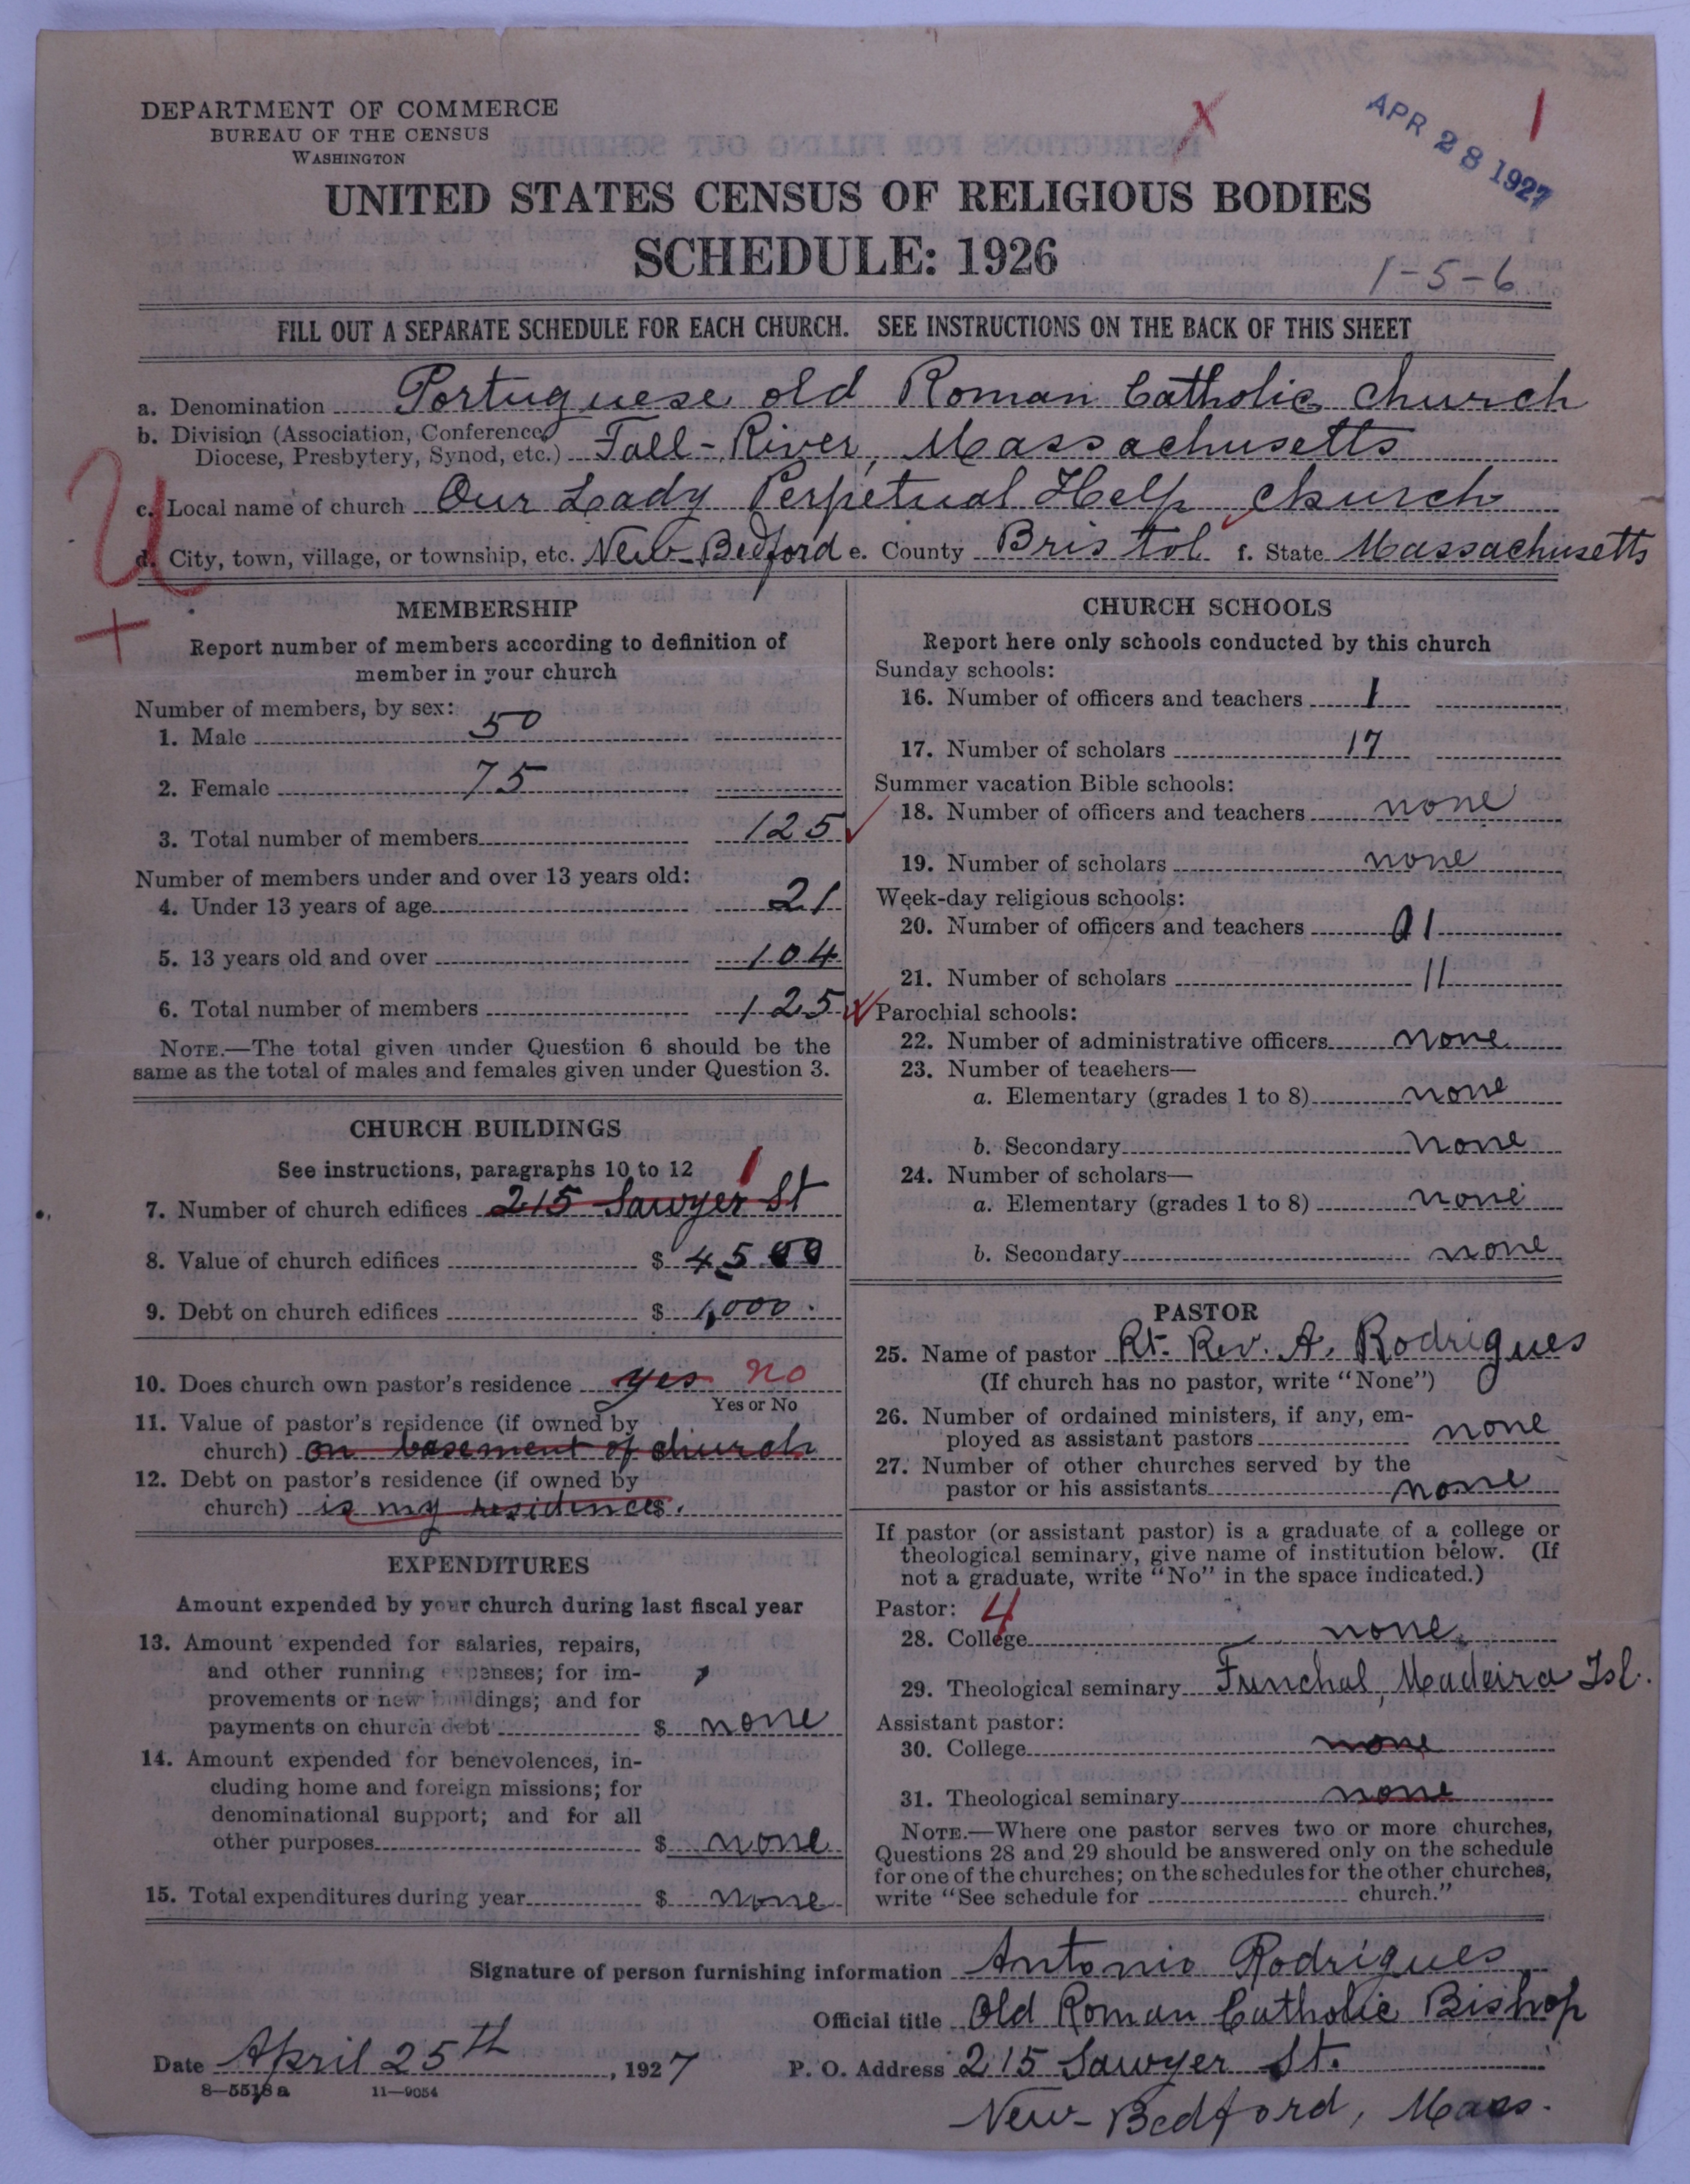 DEPARTMENT OF COMMERCE
BUREAU OF THE CENSUS
WASHINGTON
APR 28 1927
1
X
UNITED STATES CENSUS OF RELIGIOUS BODIES
SCHEDULE: 1926
1-5-6
FILL OUT A SEPARATE SCHEDULE FOR EACH CHURCH. SEE INSTRUCTIONS ON THE BACK OF THIS SHEET
a. Denomination Portuguese old Roman Catholic church
b. Division (Association, Conference,
Diocese, Presbytery, Synod, etc.) Fall-River, Massachusetts
c. Local name of church Our Lady Perpetual Help church
d. City, town, village, or township, etc. New-Bedford e. County Bristol f. State Massachusetts
MEMBERSHIP
Report number of members according to definition of
member in your church
Number of members, by sex:
1. Male 50
2. Female 75
3. Total number of members 125
Number of members under and over 13 years old:
4. Under 13 years of age 21
5. 13 years old and over 104
6. Total number of members 125
NOTE.—The total given under Question 6 should be the
same as the total of males and females given under Question 3.
CHURCH BUILDINGS
See instructions, paragraphs 10 to 12 1
7. Number of church edifices 215 Sawyer St
8. Value of church edifices $ 4500
9. Debt on church edifices $ 1,000.
10. Does church own pastor's residence yes no
Yes or No
11. Value of pastor's residence (if owned by
church) on basement of church
12. Debt on pastor's residence (if owned by
church) is my residence $.
EXPENDITURES
Amount expended by your church during last fiscal year
13. Amount expended for salaries, repairs,
and other running expenses; for im-
provements or new buildings; and for
payments on church debt $ none
14. Amount expended for benevolences, in-
cluding home and foreign missions; for
denominational support; and for all
other purposes $ none
15. Total expenditures during year $ none
CHURCH SCHOOLS
Report here only schools conducted by this church
Sunday schools:
16. Number of officers and teachers 1
17. Number of scholars 17
Summer vacation Bible schools:
18. Number of officers and teachers none
19. Number of scholars none
Week-day religious schools:
20. Number of officers and teachers 01
21. Number of scholars 11
Parochial schools:
22. Number of administrative officers none
23. Number of teachers—
a. Elementary (grades 1 to 8) none
b. Secondary none
24. Number of scholars—
a. Elementary (grades 1 to 8) none
b. Secondary none
PASTOR
25. Name of pastor Rt. Rev. A. Rodrigues
(If church has no pastor, write "None")
26. Number of ordained ministers, if any, em-
ployed as assistant pastors none
27. Number of other churches served by the
pastor or his assistants none
If pastor (or assistant pastor) is a graduate of a college or
theological seminary, give name of institution below. (If
not a graduate, write "No" in the space indicated.)
Pastor: 4
28. College none
29. Theological seminary Funchal, Madeira Isl.
Assistant pastor:
30. College none
31. Theological seminary none
NOTE.—Where one pastor serves two or more churches,
Questions 28 and 29 should be answered only on the schedule
for one of the churches; on the schedules for the other churches,
write "See schedule for church."
Signature of person furnishing information Antonio Rodrigues
Official title Old Roman Catholic Bishop
Date April 25th, 1927 P. O. Address 215 Sawyer St.
8-5518a 11-9054
New-Bedford, Mass.